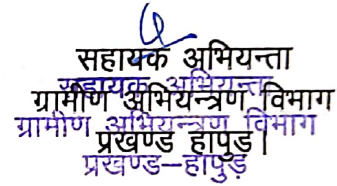 सहायक अभियन्ता
सहायक अभियन्ता
ग्रामीण अभियन्त्रण विभाग
ग्रामीण अभियन्त्रण विभाग
प्रखण्ड हापुड़।
प्रखण्ड-हापुड़